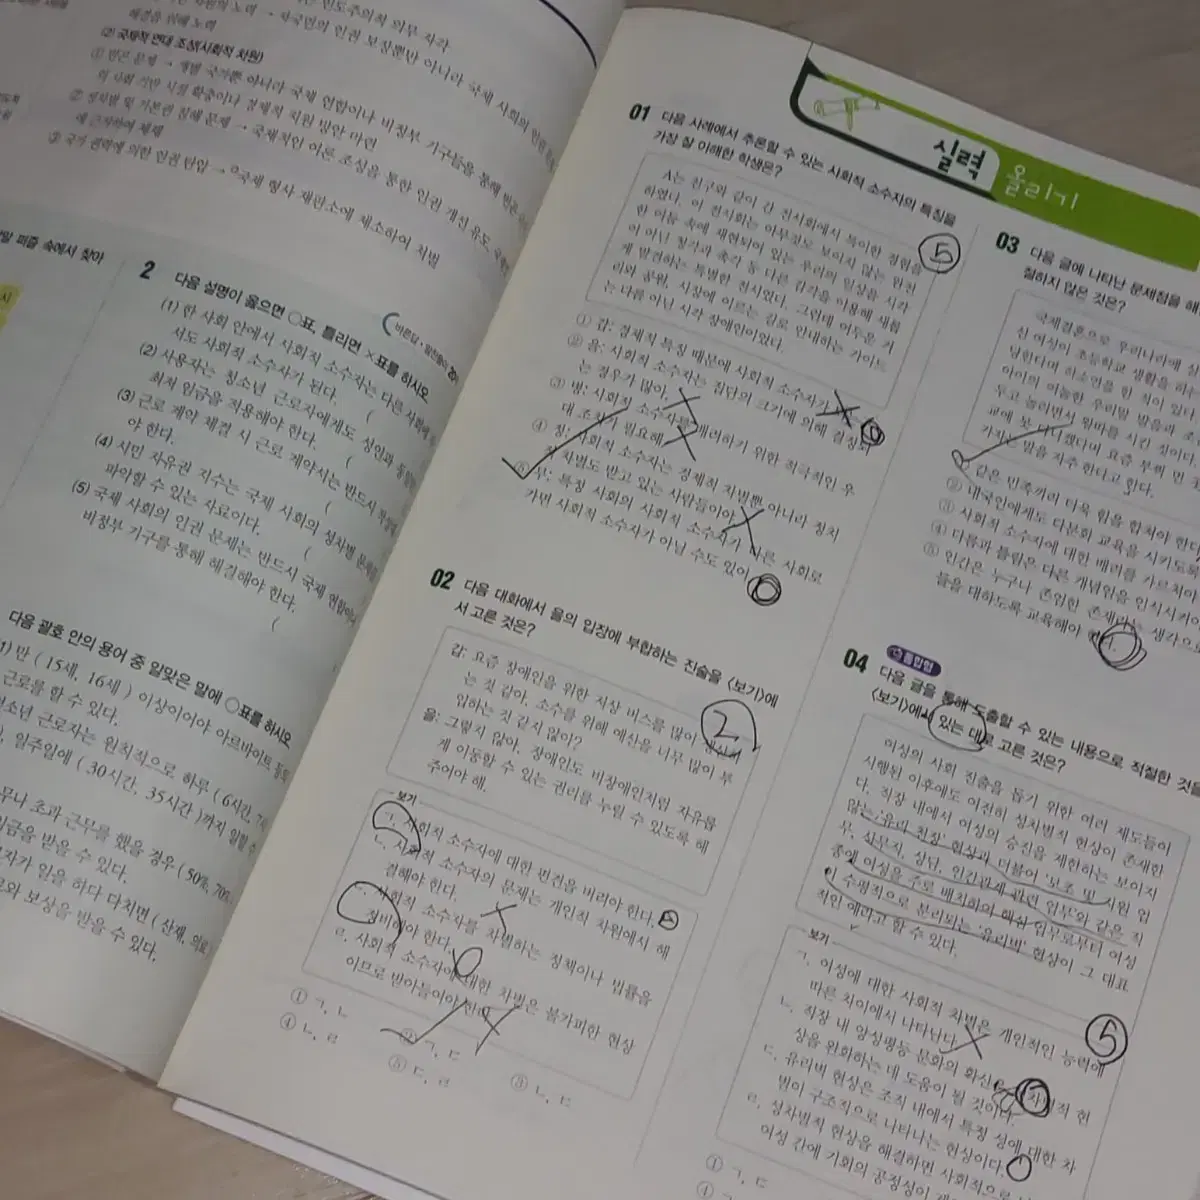 민주주의적 의무 자각
자국민의 인권 보장뿐만 아니라 국제 사회의 인권
해결을 위해 노력
(2) 국제적 연대 조성(사회적 차원)
① 빈곤 문제 → 개별 국가뿐 아니라 국제 연합이나 비정부 기구들을 통해 빈곤
의 사회 기반 시설 확충이나 경제적 지원 방안 마련
② 성차별 및 기본권 침해 문제 → 국제적인 여론 조성을 통한 인권 개선 유도
에 근거하여 제재
③ 국가 권력에 의한 인권 탄압 → 국제 형사 재판소에 제소하여 처벌
퍼즐 속에서 찾아
바른답·알찬풀이
2 다음 설명이 옳으면 ○표, 틀리면 ×표를 하시오
(1) 한 사회 안에서 사회적 소수자는 다른 사회에
서도 사회적 소수자가 된다. (
(2) 사용자는 청소년 근로자에게도 성인과 동일한
최저 임금을 적용해야 한다. (
(3) 근로 계약 체결 시 근로 계약서는 반드시 작성해
야 한다. (
(4) 시민 자유권 지수는 국제 사회의 성차별 문제를
파악할 수 있는 자료이다. (
(5) 국제 사회의 인권 문제는 반드시 국제 연합이나
비정부 기구를 통해 해결해야 한다. (
다음 괄호 안의 용어 중 알맞은 말에 ○표를 하시오
(1) 만 ( 15세, 16세 ) 이상이어야 아르바이트
근로를 할 수 있다.
청소년 근로자는 원칙적으로 하루 ( 6시간,
일주일에 ( 30시간, 35시간 )까지 일할
초과 근무를 했을 경우 ( 50%, 70%
임금을 받을 수 있다.
일을 하다 다치면 ( 산재, 의료
보상을 받을 수 있다.
실력 올리기
01 다음 사례에서 추론할 수 있는 사회적 소수자의 특징을
가장 잘 이해한 학생은?
5
A는 친구와 같이 간 전시회에서 특이한 경험을
하였다. 이 전시회는 아무것도 보이지 않는 완전
한 어둠 속에 재현되어 있는 우리의 일상을 시각
이 아닌 청각과 촉각 등 다른 감각을 이용해 새롭
게 발견하는 특별한 전시였다. 그런데 어두운 거
리와 공원, 시장에 이르는 길로 안내하는 가이드
는 다름 아닌 시각 장애인이었다.
① 갑: 경제적 특징 때문에 사회적 소수자가
는 경우가 많아.
② 을: 사회적 소수자는 집단의 크기에 의해 결정돼
③ 병: 사회적 소수자를 배려하기 위한 적극적인 우
대 조치가 필요해
④ 정: 사회적 소수자는 경제적 차별뿐 아니라 정치
적 차별도 받고 있는 사람들이야
⑤ 무: 특정 사회의 사회적 소수자가 다른 사회로
가면 사회적 소수자가 아닐 수도 있어
02 다음 대화에서 을의 입장에 부합하는 진술을 <보기>에
서 고른 것은?
2
갑: 요즘 장애인을 위한 저상 버스를 많이
는 것 같아. 소수를 위해 예산을 너무 많이 투
입하는 것 같지 않아?
을: 그렇지 않아. 장애인도 비장애인처럼 자유롭
게 이동할 수 있는 권리를 누릴 수 있도록 해
주어야 해.
보기
ㄱ. 사회적 소수자에 대한 편견을 버려야 한다.
ㄴ. 사회적 소수자의 문제는 개인적 차원에서 해
결해야 한다.
ㄷ. 사회적 소수자를 차별하는 정책이나 법률을
정비해야 한다.
ㄹ. 사회적 소수자에 대한 차별은 불가피한 현상
이므로 받아들여야 한다
① ㄱ, ㄴ
② ㄱ, ㄷ
③ ㄴ, ㄷ
④ ㄴ, ㄹ
⑤ ㄷ, ㄹ
03 다음 글에 나타난 문제점을
절하지 않은 것은?
국제결혼으로 우리나라에
신 여성이 초등학교 생활을
남한다며 하소연을 한 적이 있다
아이의 어눌한 우리말 발음과
두고 놀리면서 왕따를 시킨 것이다
교에 못
가자는 말을 자주 한다고 한다.
① 같은 민족끼리 더욱 힘을 합쳐야 한다
② 내국인에게도 다문화 교육을 시키도록
③ 사회적 소수자에 대한 배려를 가르쳐야
④ 다름과 틀림은 다른 개념임을 인식시켜야
⑤ 인간은 누구나 존엄한 존재라는 생각으로
들을 대하도록 교육해야 한다.
04 통합형
다음 글을 통해 도출할 수 있는 내용으로 적절한 것을
<보기>에서 있는 대로 고른 것은?
여성의 사회 진출을 돕기 위한 여러 제도들이
시행된 이후에도 여전히 성차별적 현상이 존재한
다. 직장 내에서 여성의 승진을 제한하는 보이지
않는 '유리 천장' 현상과 더불어 '보조 및 지원 업
무, 상무직, 상담, 인간관계 관련 업무'와 같은 직
종에 여성을 주로 배치하여 핵심 업무로부터 여성
이 수평적으로 분리되는 '유리벽' 현상이 그 대표
적인 예라고 할 수 있다.
보기
5
ㄱ. 여성에 대한 사회적 차별은 개인적인 능력에
따른 차이에서 나타난다
ㄴ. 직장 내 양성평등 문화의 확산은 차별적 현
상을 완화하는 데 도움이 될 것이다.
ㄷ. 유리벽 현상은 조직 내에서 특정 성에 대한 차
별이 구조적으로 나타나는 현상이다.
ㄹ. 성차별적 현상을 해결하면 사회적으로
여성 간에 기회의 공정성이
① ㄱ, ㄷ
④ ㄱ,